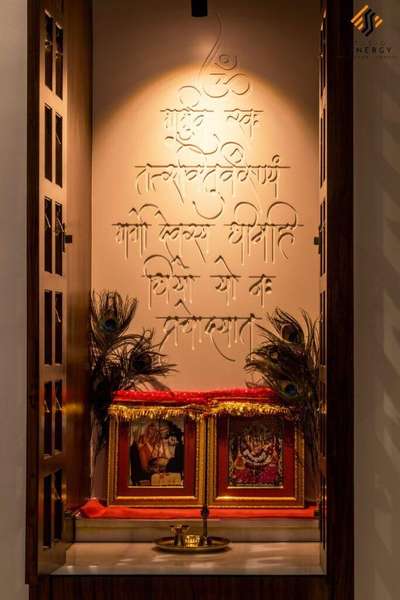 ॐ
भूर्भुवः स्वः
तत्सवितुर्वरेण्यं
भर्गो देवस्य धीमहि
धियो यो नः
प्रचोदयात्